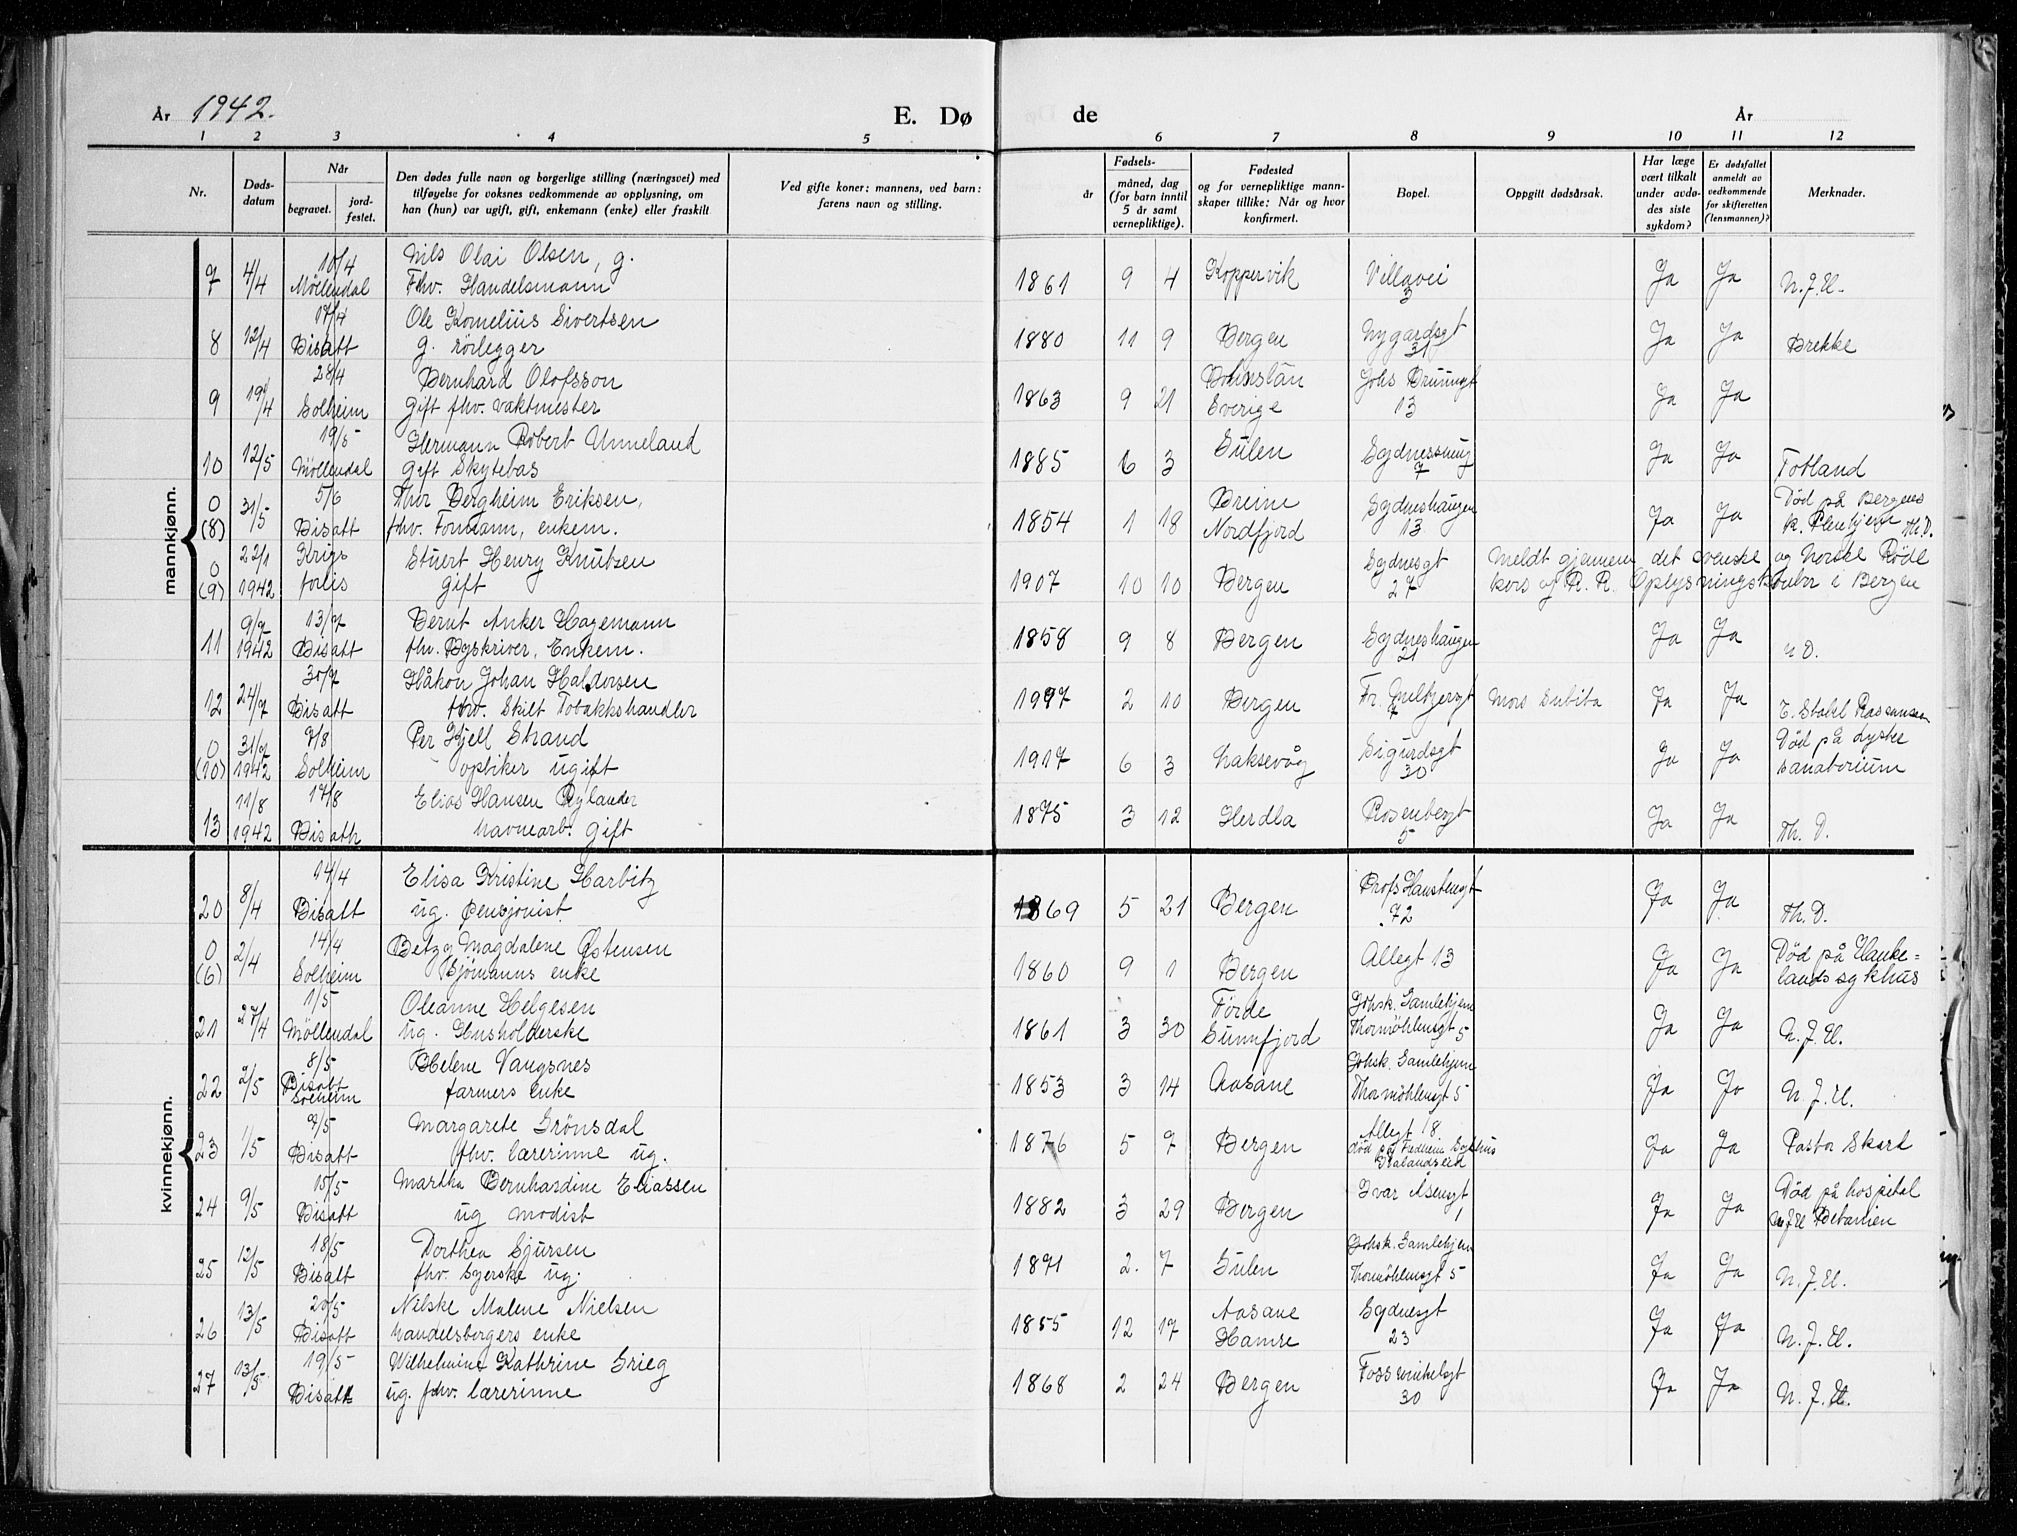 År 1942. E. Dø de År
1 2 3 4 5 6 7 8 9 10 11 12
Nr. Døds-datum Når begravet. jord-festet. Den dødes fulle navn og borgerlige stilling (næringsvei) med tilføyelse for voksnes vedkommende av opplysning, om han (hun) var ugift, gift, enkemann (enke) eller fraskilt Ved gifte koner: mannens, ved barn: farens navn og stilling. Fødsels- år måned, dag (for barn inntil 5 år samt vernepliktige). Fødested og for vernepliktige mann-skaper tillike: Når og hvor konfirmert. Bopel. Oppgitt dødsårsak. Har læge vært tilkalt under avdø-des siste sykdom? Er dødsfallet anmeldt av vedkommende for skifteretten (lensmannen)? Merknader.
mannkjønn.
10/4 Nils Olai Olsen, g.
7 4/4 Möllendal Fhv. Handelsmann 1861 9 4 Koppervik Villavei 3 Ja Ja N.J.H.
17/4 Ole Kornelius Sivertsen
8 12/4 Bisatt g. rörlegger 1880 11 9 Bergen Nygardsgt 31 Ja Ja Brekke
28/4 Bernhard Olofsson Bohuslän Johs Bruunsgt
9 19/4 Solheim Gift fhv. vaktmester 1863 9 21 Sverige 13 Ja Ja
19/5 Hermann Robert Unneland
10 12/5 Möllendal Gift Skytebas 1885 6 3 Gulen Sydneshaug 7 Ja Ja Totland
0 5/6 Thor Bergheim Eriksen, Breine Sydneshaugen Död på Bergens
(8) 31/5 Bisatt fhv. Formann, enkem. 1854 1 18 Nordfjord 13 Ja Ja k. Pleihjem Th.D.
0 22/1 Krigs Stuert Henry Knutsen Sydnesgt Meldt gjennem det svenske og Norske Röde
(9) 1942 forlis Gift 1907 10 10 Bergen 27 kors og R. R. Oplysningskontor i Bergen
9/7 13/7 Bernt Anker Hagemann
11 1942 Bisatt fhv. Byskriver. Enkem. 1858 9 8 Bergen Sydneshaugen 21 Ja Ja
30/7 Håkon Johan Haldorsen
12 24/7 Bisatt fhv. Skilt Tobakkshandler 2 10 Bergen 7 Mors Subita Ja Ja E. Stahl Rasmussen
0 31/7 7/8 Per Kjell Strand Sigurdsgt Död på Lyster
(10) 1942 Solheim optiker ugift 1917 6 3 Laksevåg 30 Ja Ja sanatorium
11/8 17/8 Elias Hansen Rylander
13 1942 Bisatt havnearb. Gift 1875 3 12 Herdla Rosenbergt 5 Ja Ja Th. D.
kvinnekjønn.
14/4 Elisa Kristine Harbitz Profs Hansteensgt
20 8/4 Bisatt ug. Pensjonist. 1869 5 21 Bergen 72 Ja Ja Th. D.
0 14/4 Betzy Magdalene Østensen Död på Hauke=
(6) 2/4 Solheim Sjömanns enke 1860 9 1 Bergen Allegt 13 Ja Ja lands sykhus
1/5 Oleanne Helgesen Förde Johsk. Gamlehjem
21 27/4 Möllendal ug. Husholderske 1861 3 30 Sunnfjord Thormöhlensgt 5 Ja Ja N.J.H.
8/5 Helene Vangsnes Johsk. Gamlehjem
22 2/5 Bisatt Solheim farmers enke 1853 3 14 Aasane Thormöhlensgt 5 Ja Ja N.J.H.
7/5 Margarete Grönsdal Allegt 18.
23 1/5 Bisatt fhv. lærerinne ug. 1876 5 7 Bergen död på Sykhus Ja Ja Pastor
15/5 Martha Bernhardine Eliassen Ivar Åsensgt Död på hospital
24 9/5 Bisatt ug modist 1882 3 29 Bergen 1 Ja Ja N.J.H. Betanien
18/5 Dorthea Sjursen Johsk. Gamlehjem
25 12/5 Bisatt fhv. Syerske ug. 1871 2. 7 Gulen Thormöhlensgt 5 Ja Ja N.J.H.
20/5 Nilske Malene Nielsen Aasane Sydnesgt
26 13/5 Bisatt handelsborgers enke 1855 12 17 Hamre 23 Ja Ja N.J.H.
19/5 Wilhelmine Kathrine Grieg
27 13/5 Bisatt ug. fhv. lærerinne 1868 2 24 Bergen Fosswinkelsgt 30 Ja Ja N.J.H.